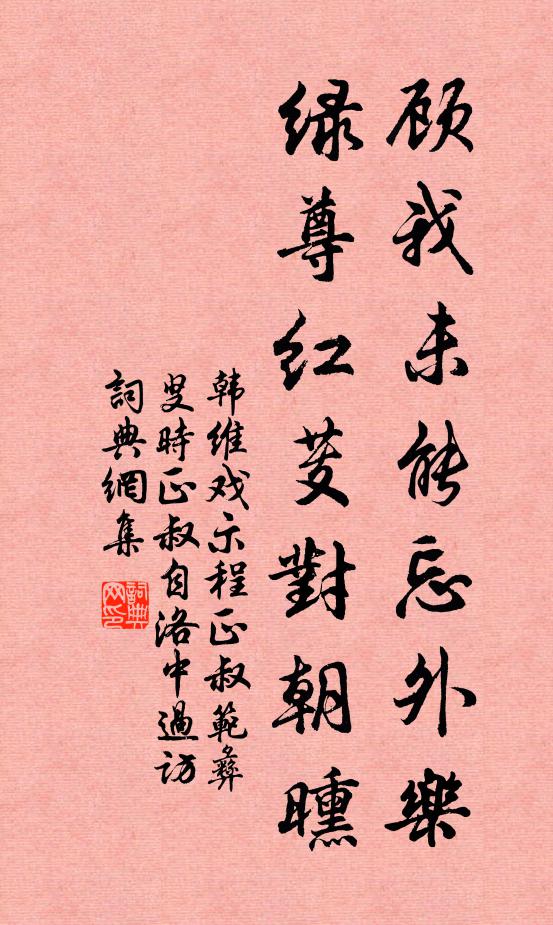 顾我未能忘外樂
绿尊红芰對朝曛
韩维戏示程正叔範彝
叟時正叔自洛中過访
詞典網集
詞典
网印